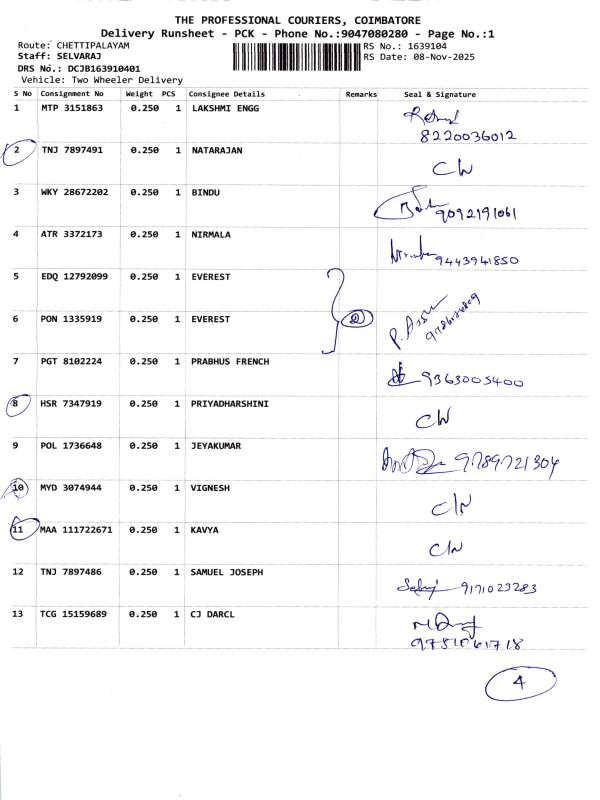 THE PROFESSIONAL COURIERS, COIMBATORE
Delivery Runsheet - PCK - Phone No.:9047080280 - Page No.:1
Route: CHETTIPALAYAM RS No.: 1639104
Staff: SELVARAJ RS Date: 08-Nov-2025
DRS No.: DCJB163910401
Vehicle: Two Wheeler Delivery
S No Consignment No Weight PCS Consignee Details Remarks Seal & Signature
1 MTP 3151863 0.250 1 LAKSHMI ENGG
8220036012
2 TNJ 7897491 0.250 1 NATARAJAN
CW
3 WKY 28672202 0.250 1 BINDU
9092191061
4 ATR 3372173 0.250 1 NIRMALA
9443941850
5 EDQ 12792099 0.250 1 EVEREST
6 PON 1335919 0.250 1 EVEREST
2
7 PGT 8102224 0.250 1 PRABHUS FRENCH
9363005400
8 HSR 7347919 0.250 1 PRIYADHARSHINI
CW
9 POL 1736648 0.250 1 JEYAKUMAR
9789721304
10 MYD 3074944 0.250 1 VIGNESH
CW
11 MAA 111722671 0.250 1 KAVYA
CW
12 TNJ 7897486 0.250 1 SAMUEL JOSEPH
9171023283
13 TCG 15159689 0.250 1 CJ DARCL
4